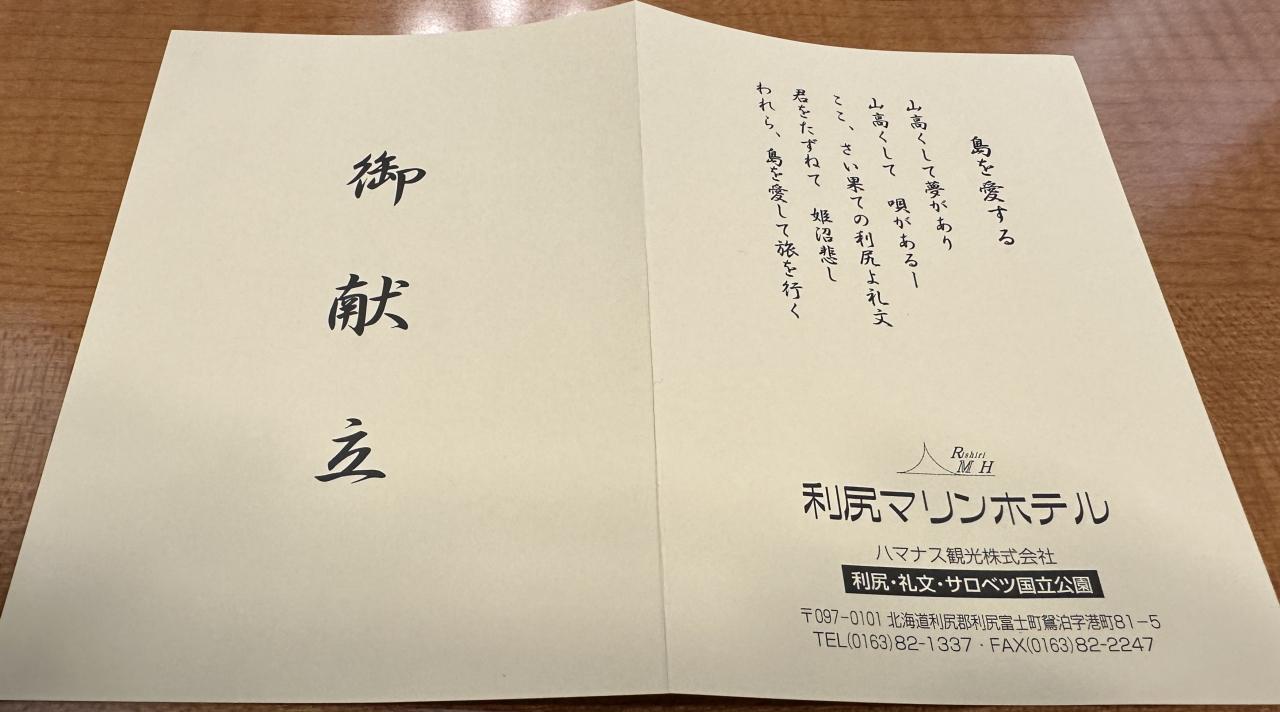 御献立
島を愛する
山高くして夢があり
山高くして 唄があるー
ここ、さい果ての利尻よ礼文
君をたずねて 姫沼悲し
われら、島を愛して旅を行く
Rishiri
M H
利尻マリンホテル
ハマナス観光株式会社
利尻・礼文・サロベツ国立公園
〒097-0101 北海道利尻郡利尻富士町鴛泊字港町81-5
TEL(0163)82-1337・FAX(0163)82-2247